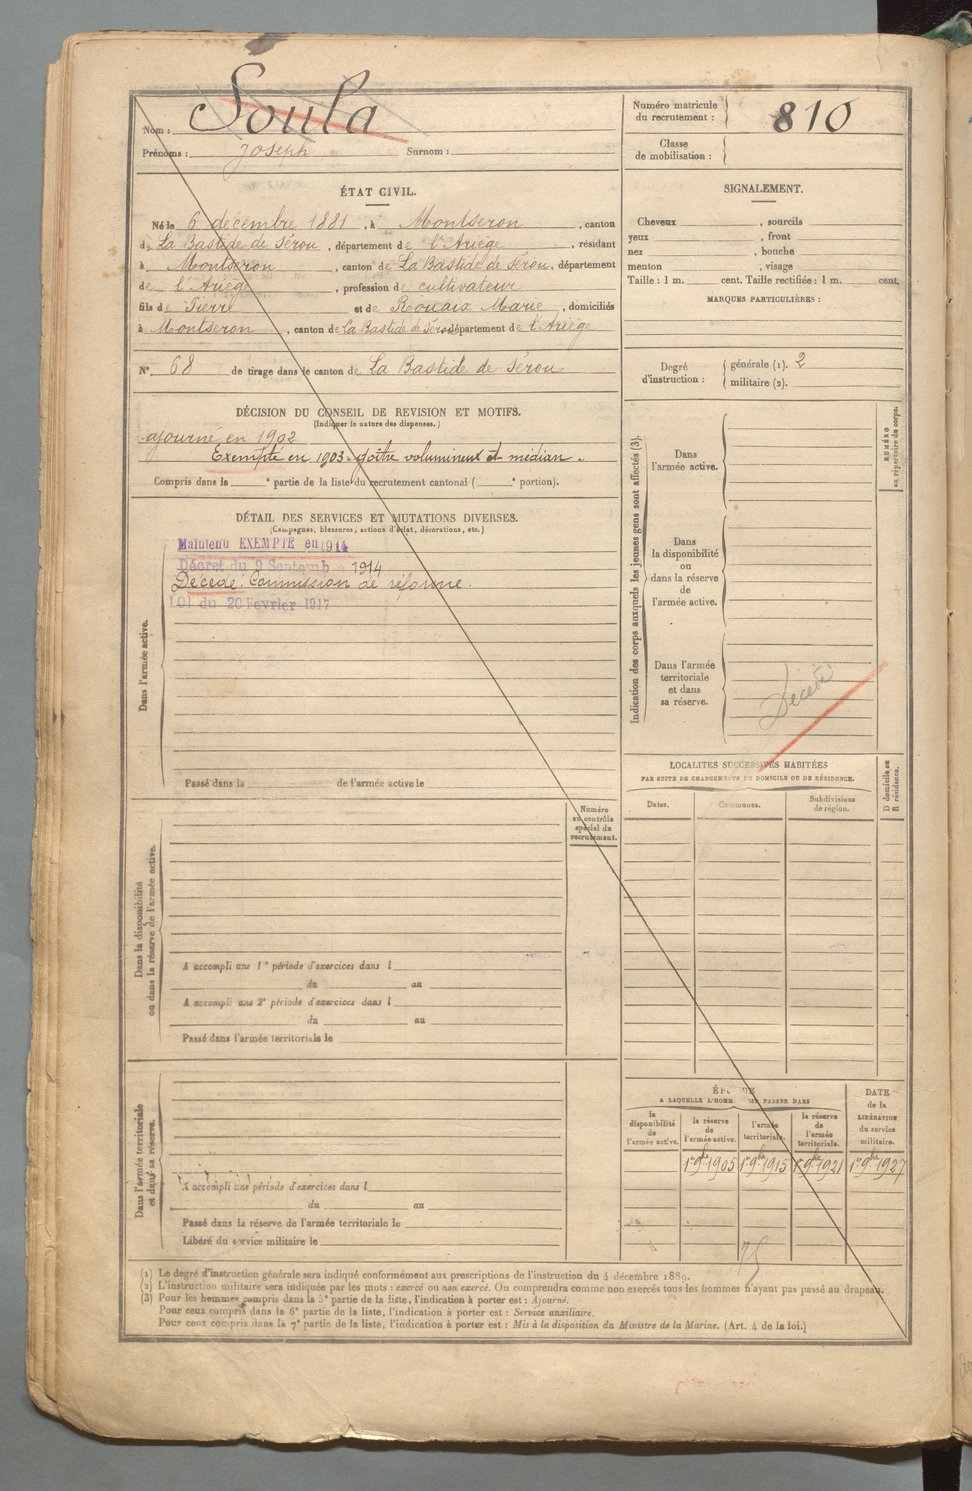 Nom : Soula
Prénoms : Joseph Surnom :
Numéro matricule
du recrutement : 810
Classe
de mobilisation :
ÉTAT CIVIL.
Né le 6 décembre 1881, à Montseron, canton
de La Bastide de Sérou, département de l'Ariège, résidant
à Montseron, canton de La Bastide de Sérou, département
de l'Ariège, profession de cultivateur
fils de Pierre et de Rouaix Marie, domiciliés
à Montseron, canton de La Bastide de Sérou département de l'Ariège
N° 68 de tirage dans le canton de La Bastide de Sérou
SIGNALEMENT.
Cheveux , sourcils
yeux , front
nez , bouche
menton , visage
Taille : 1 m. cent. Taille rectifiée : 1 m. cent.
MARQUES PARTICULIÈRES :
Degré
d'instruction :
générale (1). 2
militaire (2).
DÉCISION DU CONSEIL DE REVISION ET MOTIFS.
(Indiquer la nature des dispenses.)
ajourné en 1902
Exempté en 1903. goitre volumineux et médian.
Compris dans la e partie de la liste du recrutement cantonal ( e portion).
DÉTAIL DES SERVICES ET MUTATIONS DIVERSES.
(Campagnes, blessures, actions d'éclat, décorations, etc.)
Maintenu EXEMPTE en 1914
Décret du 9 Septembre 1914
Décédé. Commission de réforme.
LOI du 20 Fevrier 1917
Dans l'armée active.
Passé dans la de l'armée active le
Numéro
au contrôle
spécial du
recrutement.
Dans la disponibilité
ou dans la réserve de l'armée active.
A accompli une 1re période d'exercices dans l
du au
A accompli une 2e période d'exercices dans l
du au
Passé dans l'armée territoriale le
Dans l'armée territoriale
et dans sa réserve.
A accompli une période d'exercices dans l
du au
Passé dans la réserve de l'armée territoriale le
Libéré du service militaire le
Indication des corps auxquels les jeunes gens sont affectés (3).
Dans
l'armée active.
Dans
la disponibilité
ou
dans la réserve
de
l'armée active.
Dans l'armée
territoriale
et dans
sa réserve.
Décédé
NUMÉRO
au répertoire du corps.
LOCALITÉS SUCCESSIVES HABITÉES
PAR SUITE DE CHANGEMENTS DE DOMICILE OU DE RÉSIDENCE.
Dates.
Communes.
Subdivisions
de région.
D domicile ou
R résidence.
ÉPOQUE
A LAQUELLE L'HOMME DOIT PASSER DANS
la
disponibilité
de
l'armée active.
la réserve
de
l'armée active.
l'armée
territoriale.
la réserve
de
l'armée
territoriale.
DATE
de la
LIBÉRATION
du service
militaire.
1er 9bre 1905 1er 9bre 1915 1er 9bre 1921 1er 9bre 1927
(1) Le degré d'instruction générale sera indiqué conformément aux prescriptions de l'instruction du 4 décembre 1889.
(2) L'instruction militaire sera indiquée par les mots : exercé ou non exercé. On comprendra comme non exercés tous les hommes n'ayant pas passé au drapeau.
(3) Pour les hommes compris dans la 5e partie de la liste, l'indication à porter est : Ajourné.
Pour ceux compris dans la 6e partie de la liste, l'indication à porter est : Service auxiliaire.
Pour ceux compris dans la 7e partie de la liste, l'indication à porter est : Mis à la disposition du Ministre de la Marine. (Art. 4 de la loi.)